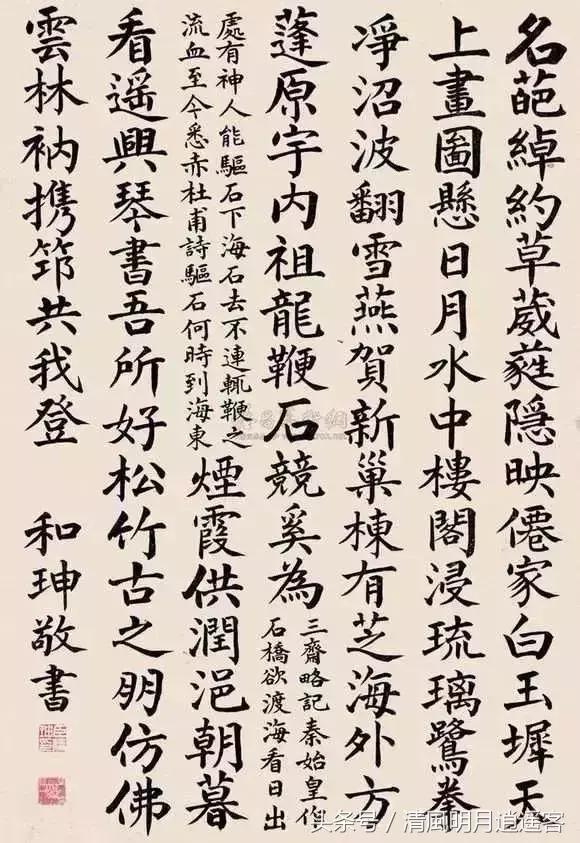 名葩綽約草葳蕤隱映僊家白玉墀天
上畫圖懸日月水中樓閣浸琉璃鷺拳
凈沼波翻雪燕賀新巢棟有芝海外方
蓬原宇内祖龍鞭石競奚為
三齋略記秦始皇作
石橋欲渡海看日出
處有神人能驅石下海石去不連輒鞭之
流血至今悉赤杜甫詩驅石何時到海東
煙霞供潤浥朝暮
看遥興琴書吾所好松竹古之朋仿佛
雲林衲携筇共我登
和珅敬書
头条号/清風明月逍遥客